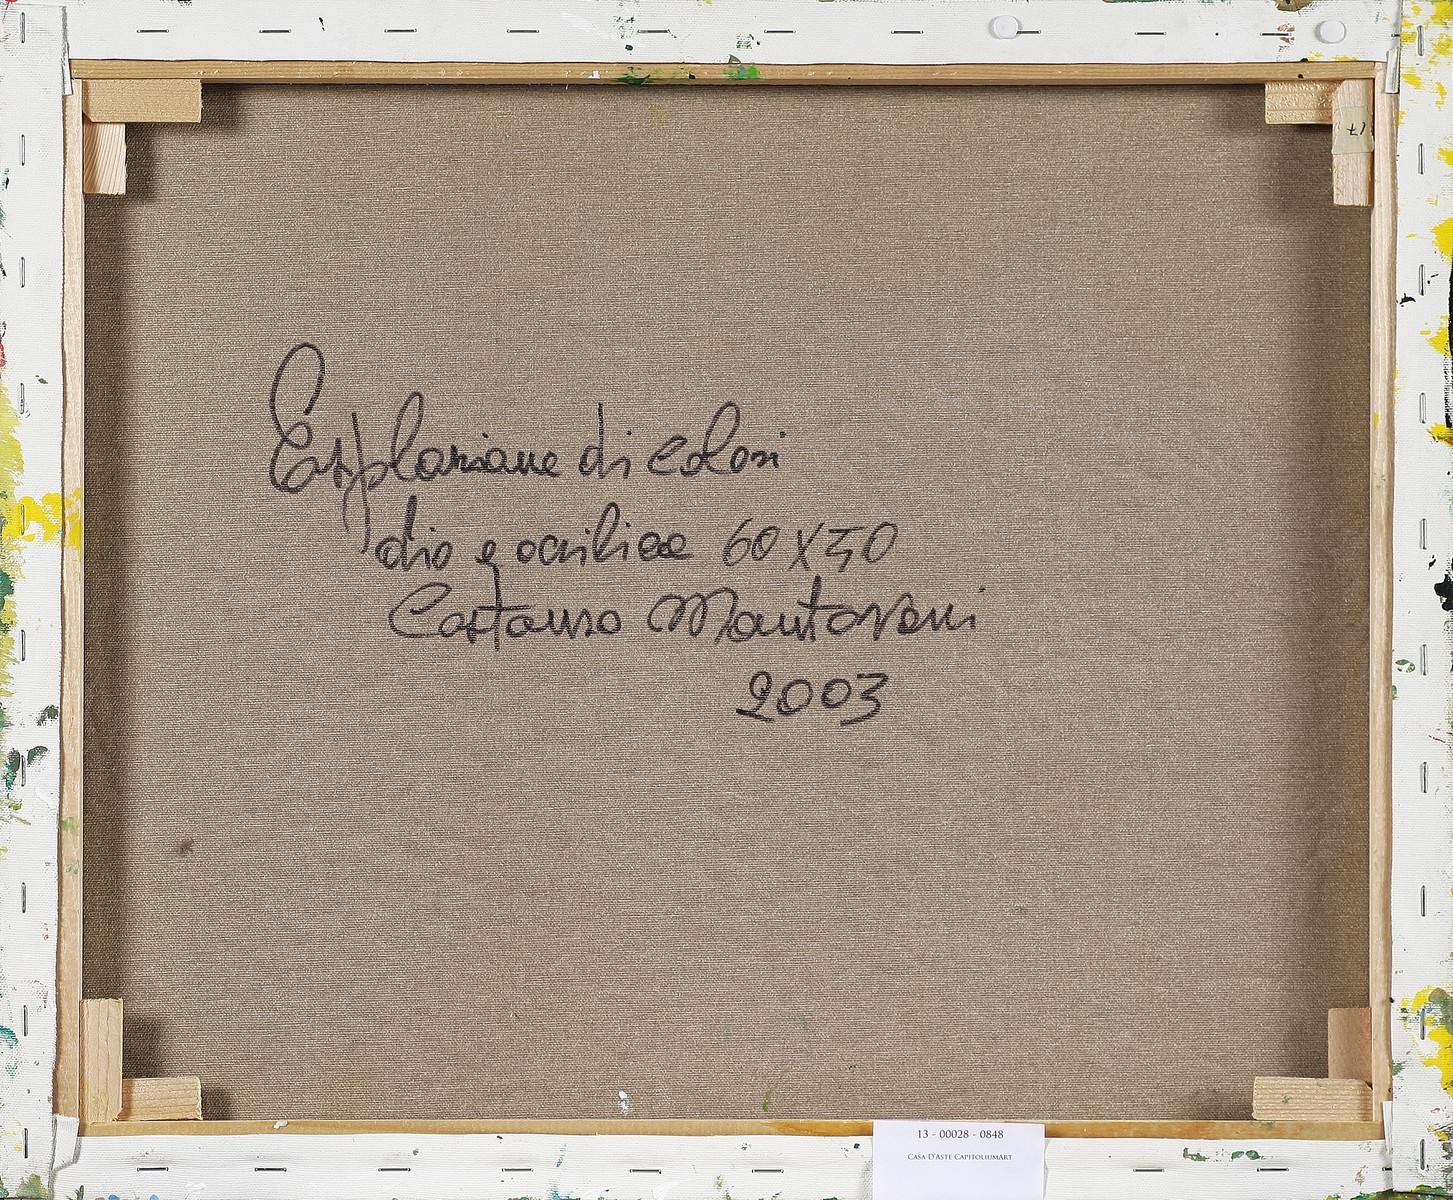 17
Esplosione di colori
olio e acrilico 60 X 50
Costanzo Mantovani
2003
13 - 00028 - 0848
CASA D'ASTE CAPITOLIUMART